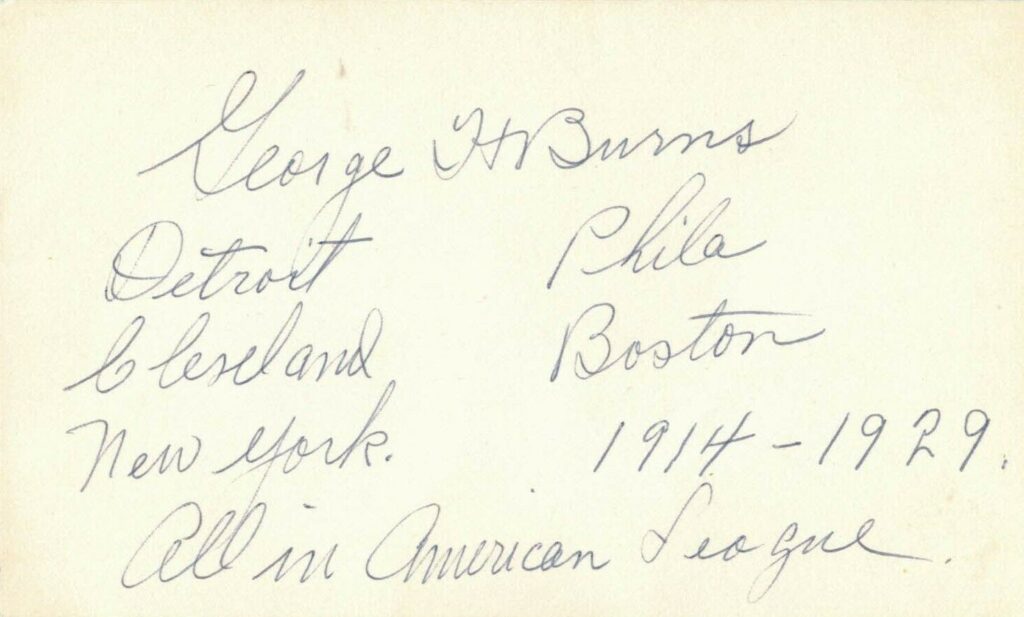 George H Burns
Detroit Phila
Cleveland Boston
New York. 1914-1929.
All in American League.